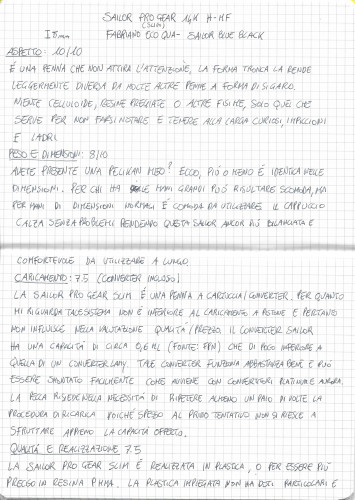 SAILOR PRO GEAR 14K H-MF
(SLIM)
FABRIANO ECO QUA - SAILOR BLUE BLACK
ASPETTO: 10/10
È UNA PENNA CHE NON ATTIRA L'ATTENZIONE. LA FORMA TRONCA LA RENDE
LEGGERMENTE DIVERSA DA MOLTE ALTRE PENNE A FORMA DI SIGARO.
NIENTE CELLULOIDE, RESINE PREGIATE O ALTRE FISIME, SOLO QUEL CHE
SERVE PER NON FARSI NOTARE E TENERE ALLA LARGA CURIOSI, IMPICCIONI
E LADRI.
PESO E DIMENSIONI: 8/10
AVETE PRESENTE UNA PELIKAN M200? ECCO, PIÙ O MENO È IDENTICA NELLE
DIMENSIONI. PER CHI HA LE MANI GRANDI PUÒ RISULTARE SCOMODA, MA
PER MANI DI DIMENSIONI NORMALI È COMODA DA UTILIZZARE. IL CAPPUCCIO
CALZA SENZA PROBLEMI RENDENDO QUESTA SAILOR ANCOR PIÙ BILANCIATA E
CONFORTEVOLE DA UTILIZZARE A LUNGO.
CARICAMENTO: 7.5 (CONVERTER INCLUSO)
LA SAILOR PRO GEAR SLIM È UNA PENNA A CARTUCCIA/CONVERTER. PER QUANTO
MI RIGUARDA TALE SISTEMA NON È INFERIORE AL CARICAMENTO A PISTONE E PERTANTO
NON INFLUISCE NELLA VALUTAZIONE QUALITÀ/PREZZO. IL CONVERTER SAILOR
HA UNA CAPACITÀ DI CIRCA 0,6 ML (FONTE: FPN) CHE DI POCO INFERIORE A
QUELLA DI UN CONVERTER LAMY. TALE CONVERTER FUNZIONA ABBASTANZA BENE E PUÒ
ESSERE SMONTATO FACILMENTE COME AVVIENE CON CONVERTITORI PLATINUM E AURORA.
LA PECCA RISIEDE NELLA NECESSITÀ DI RIPETERE ALMENO UN PAIO DI VOLTE LA
PROCEDURA DI RICARICA POICHÉ SPESSO AL PRIMO TENTATIVO NON SI RIESCE A
SFRUTTARE APPIENO LA CAPACITÀ OFFERTA.
QUALITÀ E REALIZZAZIONE 7.5
LA SAILOR PRO GEAR SLIM È REALIZZATA IN PLASTICA, O PER ESSERE PIÙ
PRECISO IN RESINA PMMA. LA PLASTICA IMPIEGATA NON HA DOTI PARTICOLARI E